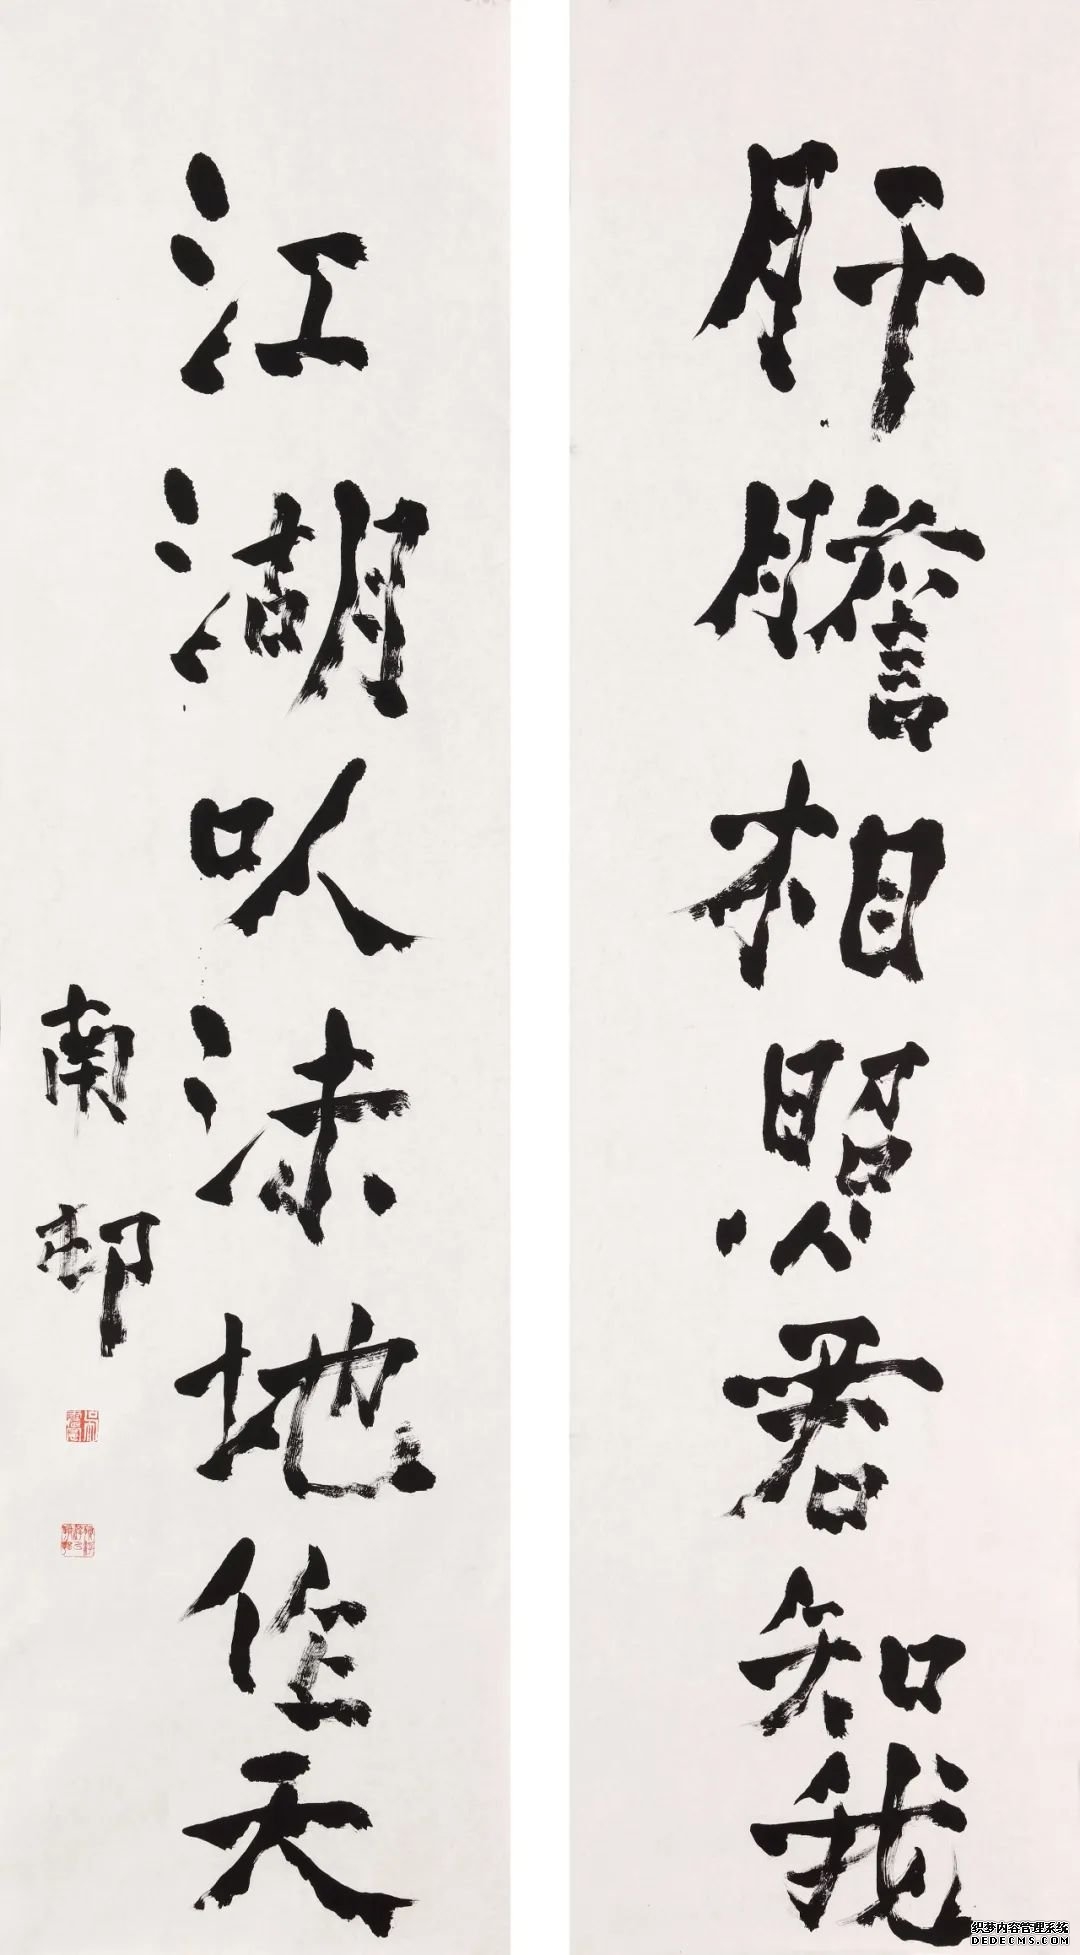 肝膽相照君知我
江湖以沫地作天
南邨
织梦内容管理系统
DEDECMS.COM